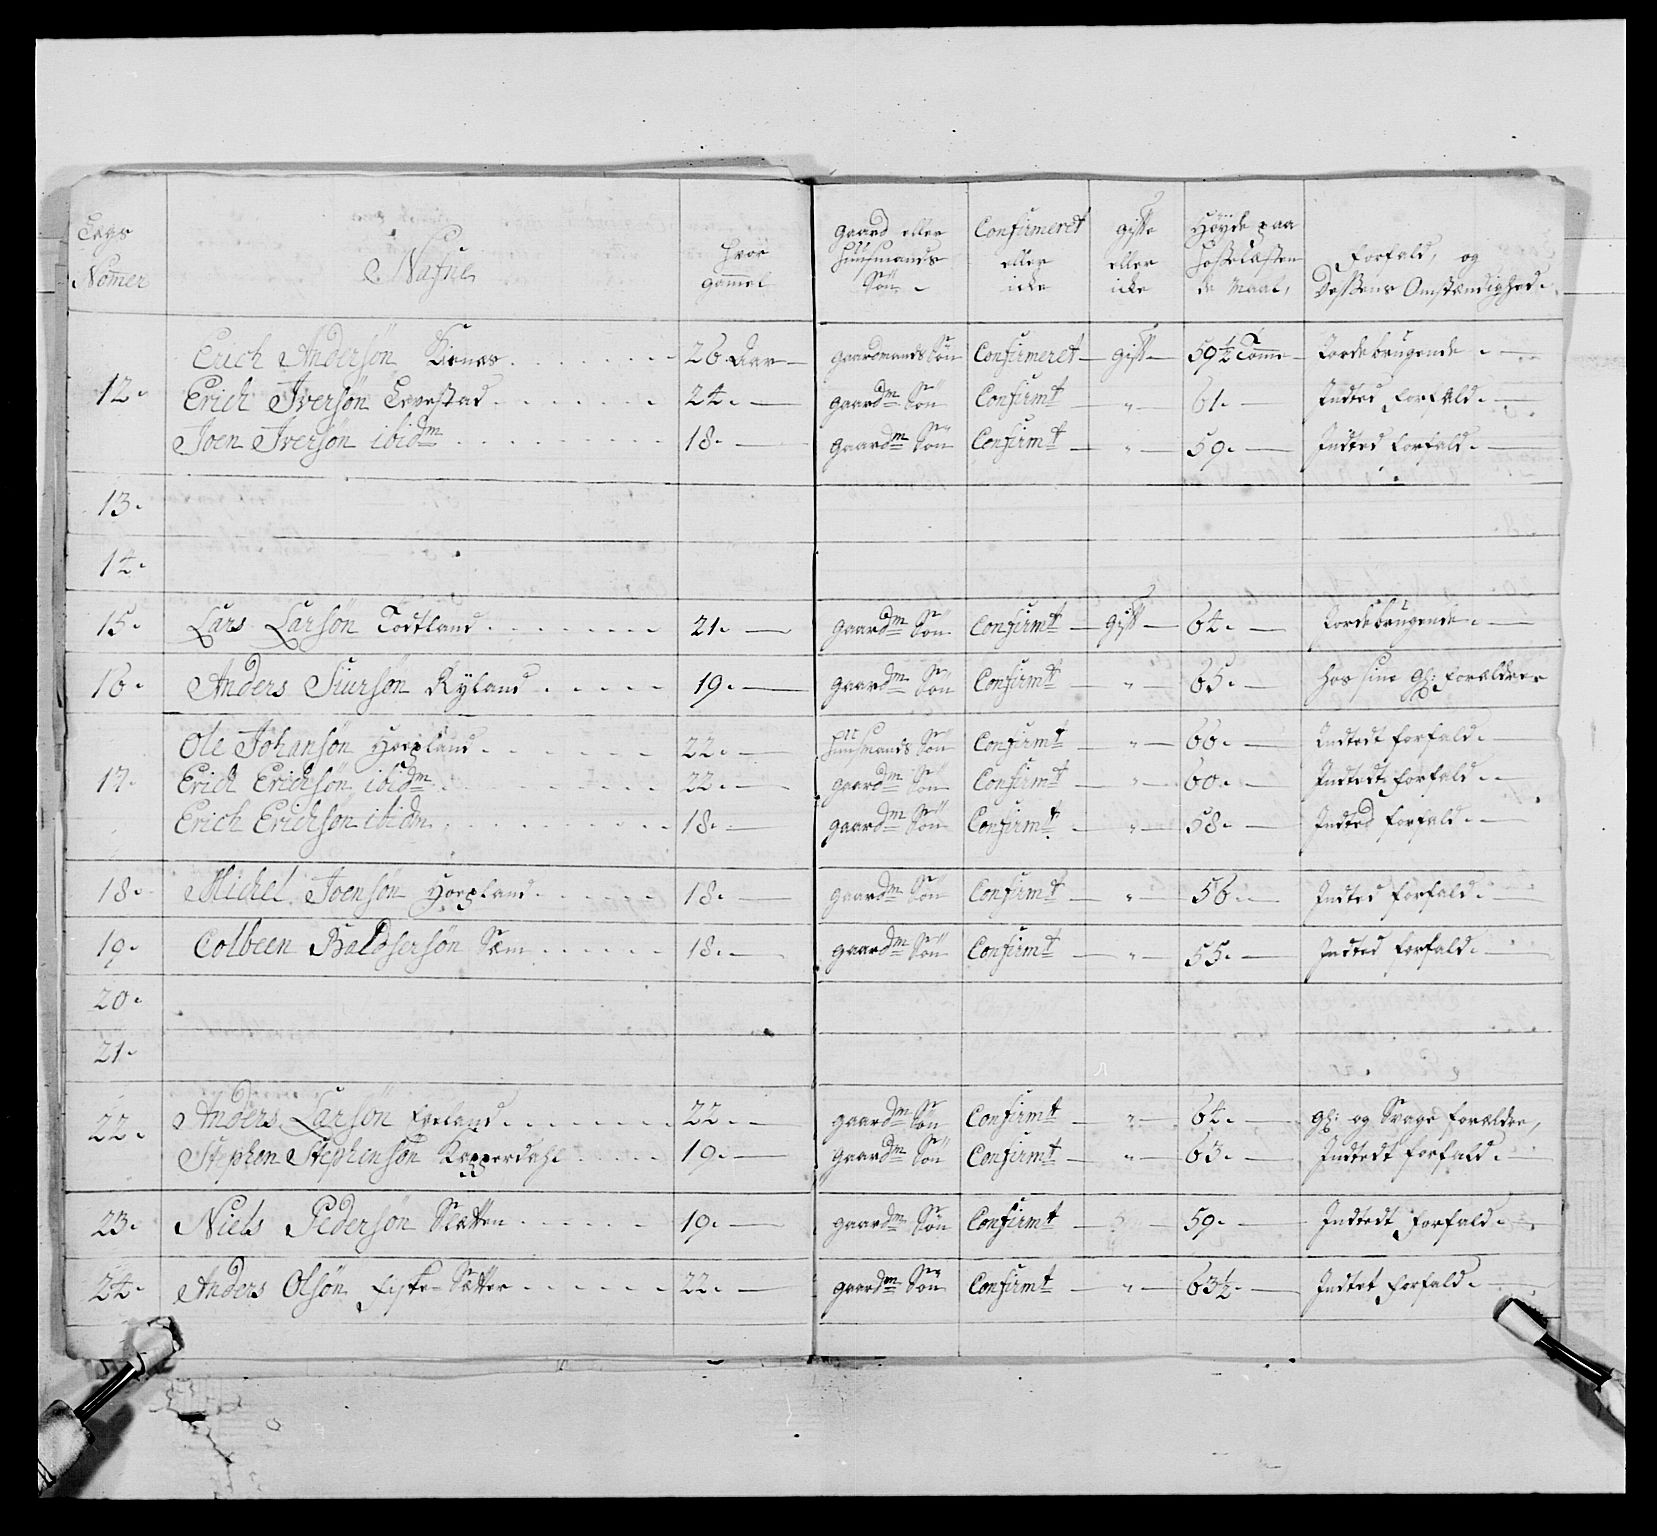 Legs Nomer | Nafne | Hvor gammel | gaard eller huusmands Søn | Confirmeret eller icke | gifte eller icke | Høyde paa Hosselæsten de Maal, | Forfald, og Deßens Omstændighed.
12. | Erich Andersøn Kirnes | 26 Aar | gaardmands Søn | Confirmeret | gift | 59½ Tomme | Jordebrugende
Erich Iversøn Levestad | 24. | gaardm Søn | Confirmt | " | 61. | Indted forfald
Joen Iversøn ibidm | 18. | gaardm Søn | Confirmt | " | 59. | Indted forfald
13.
14.
15. | Lars Larsøn Todtland | 21. | gaardm Søn | Confirmt | gift | 64. | Jordebrugende
16. | Anders Siursøn Ryland | 19. | gaardm Søn | Confirmt | " | 65. | hos sine gl: forældree
Ole Johansøn Hopland | 22. | huusmands Søn | Confirmt | " | 66. | Indtedt forfald
17. | Erich Erichsøn ibidm | 22. | gaardm Søn | Confirmt | " | 60. | Indtedt forfald
Erich Erichsøn ibidm | 18. | gaardm Søn | Confirmt | " | 58. | Indted forfald
18. | Michel Joensøn Hopland | 18. | gaardm Søn | Confirmt | " | 56 | Indted forfald
19. | Colbeen Baldsersøn Sæm | 18. | gaardm Søn | Confirmt | " | 55. | Indted forfald
20.
21.
22. | Anders Larsøn | 22. | gaardm Søn | Confirmt | " | 64. | gl: og Svage forældre,
Stephen Stephensøn Kapperdahl | 19. | gaardm Søn | Confirmt | " | 63. | Indtedt forfald
23. | Niels Pedersøn Slætten | 19. | gaardm Søn | Confirmt | 59. | Indtedt forfald
24. | Anders Olsøn Fiske-Sætter | 22. | gaardm Søn | Confirmt | " | 63½. | Indtet forfald